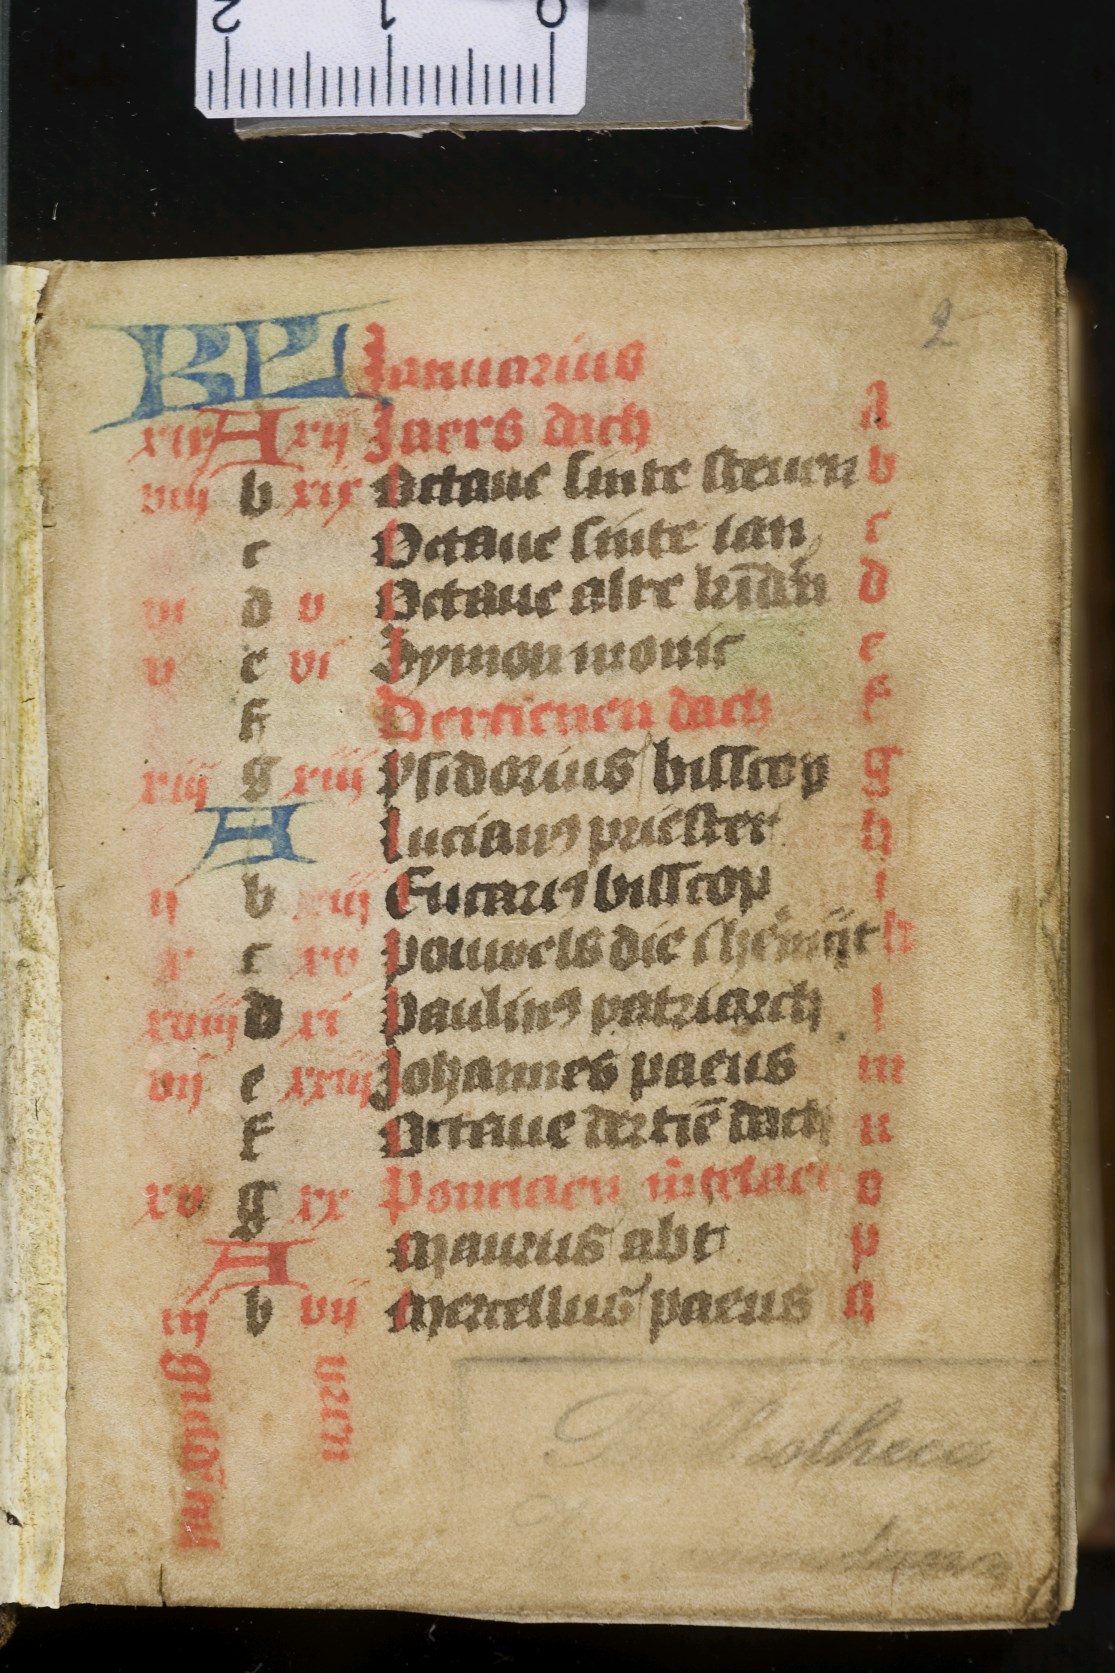 2 1 0
2
KL Januarius
xix A xij Jaers dach A
viij b xix Octaue sinte steuen b
c Octaue sinte ian c
vi d v Octaue alre kīdr̄n d
v e vi Symon monic e
f Dertienen dach f
xiij g xiij ysidorius bisscop g
A Lucianus priester h
ij b xiij Eucarius bisscop i
x c xv pouwels die k
xviij d xi paulinus patriarch l
vij e xxiij Johannes paeus m
f Octaue dertiē dach n
xv g xx Ponciaen o
A Maurus abt p
iij b vij Mercellius paeus q
guldē
vren
Bibliotheca